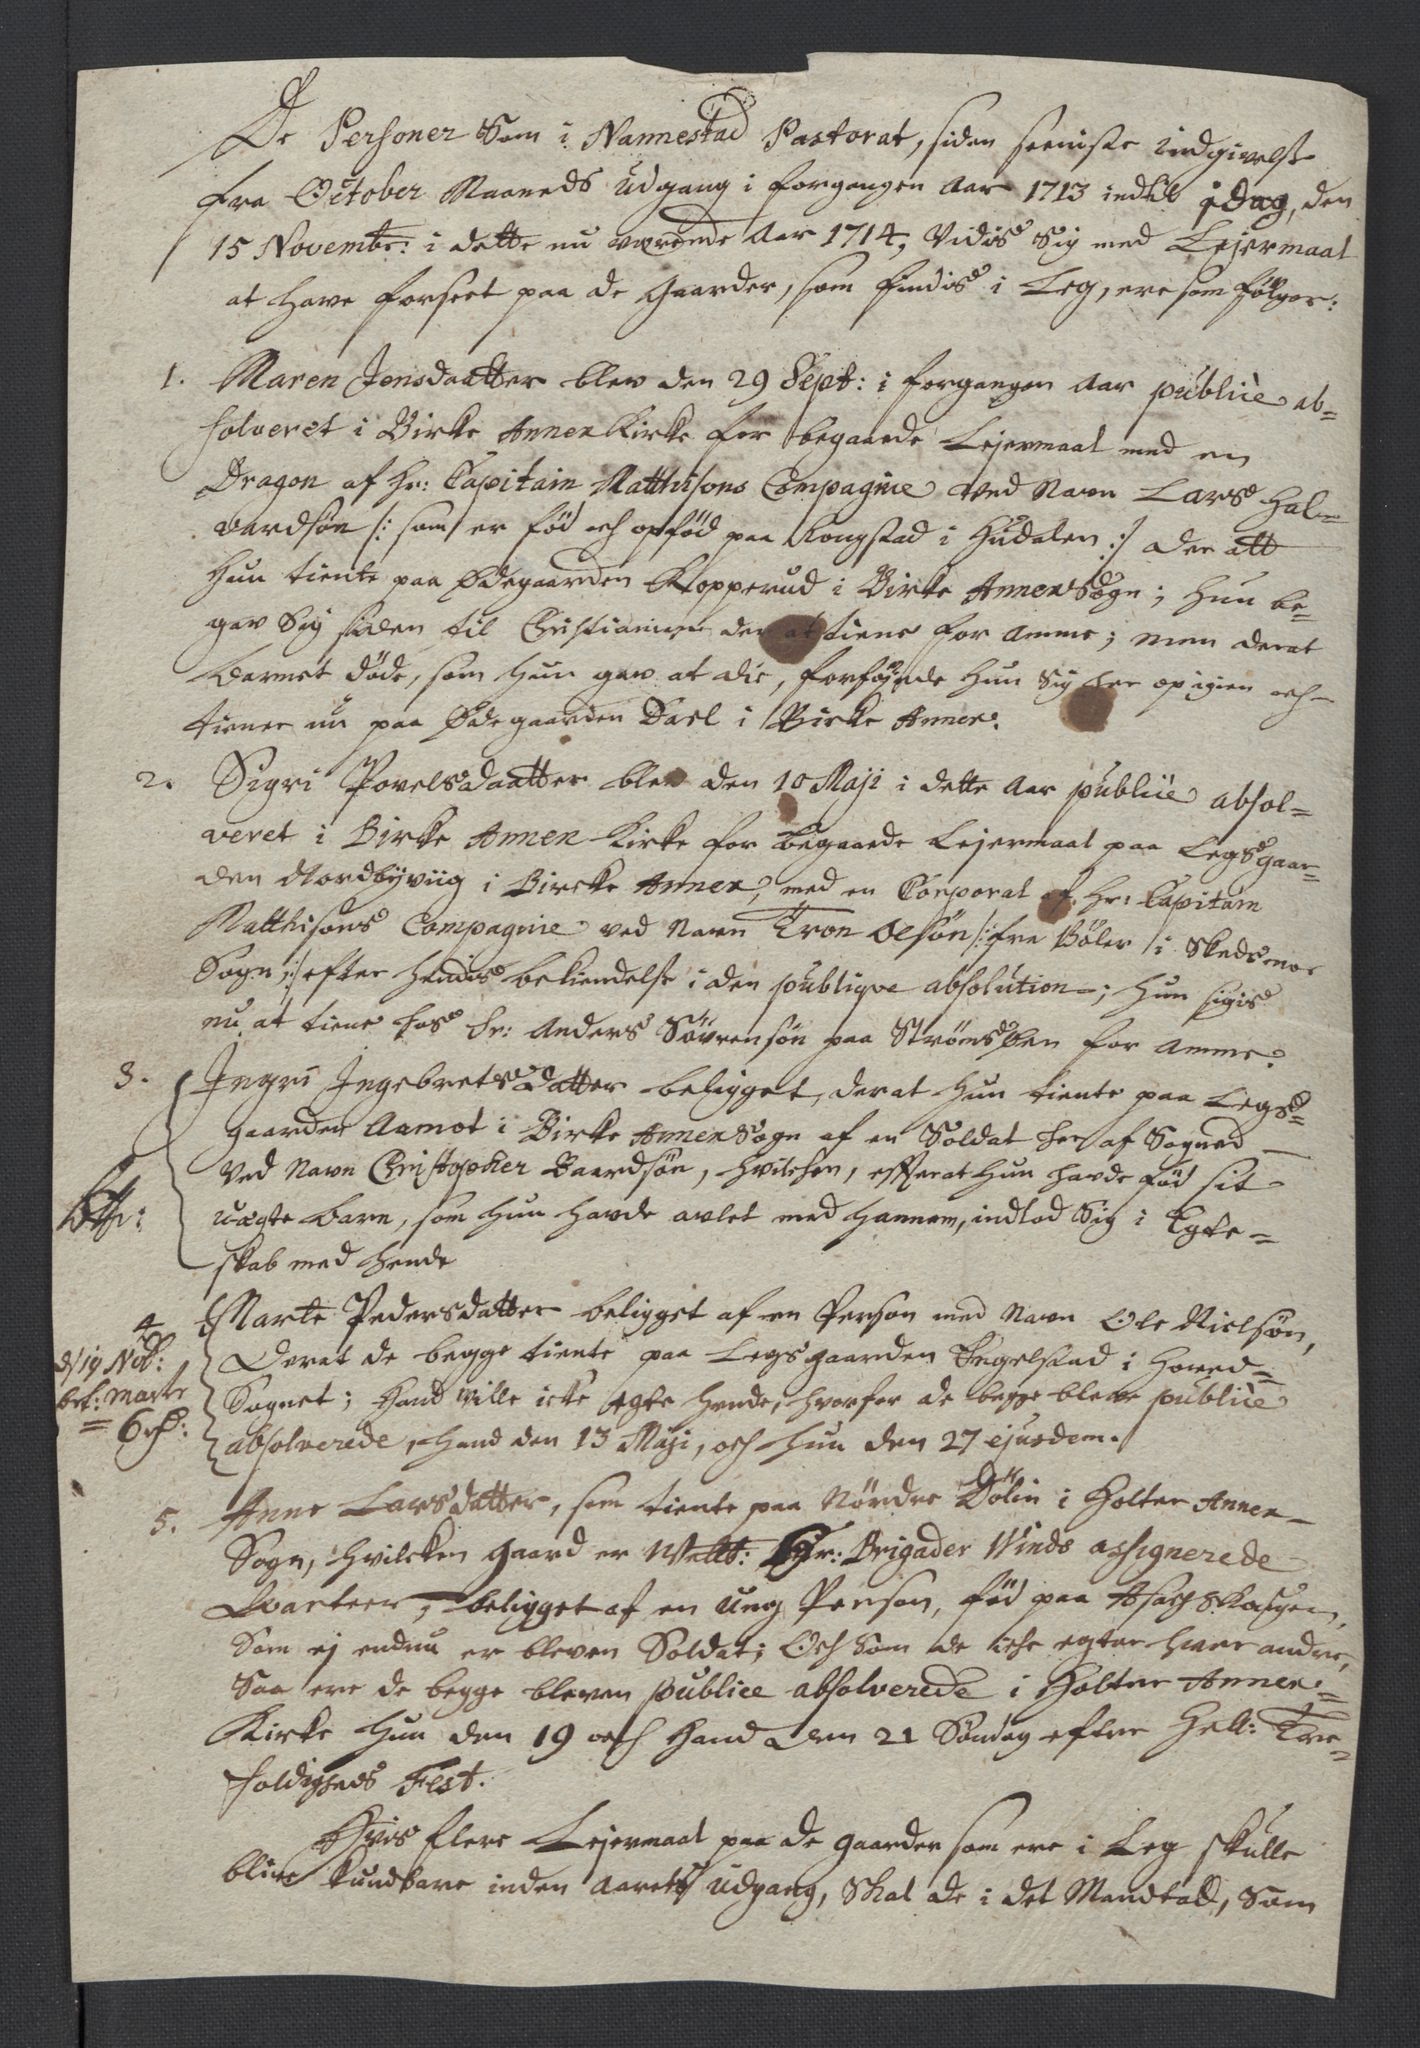 De Personer Som i Nannestad Pastorat, siden seeniste indgivelse
fra October Maaneds Udgang i forgangen Aar 1713 indtil i Dag, den
15 Novembr: i dette nu værende Aar 1714, Vidis Sig med Lejermaal
at have forseet paa de Gaarder, som findis i Leg, ere som følger:
1. Maren Jensdaatter blev den 29 Sept: i forgangen Aar publicè ab=
solveret i Birke Annex Kirke for begaaede Lejermaal med en
Dragon af Hr: Capitain Matthisons Compagnie ved Navn Lars Hal=
vardsøn /: som er fød och opfød paa Rongstad i Hudalen :/ der att
hun tiente paa Ødegaarden Kopperud i Birke Annex Sogn; hun be=
gav Sig siden til Christiania der at tiene for Amme; men derat
barnet døde, som hun gav at die, forføjede hun Sig her op igien och
tiener nu paa Ødegaarden Dael i Birke Annex.
2. Sigri Povelsdaatter blev den 10 Maji i dette Aar publicè absol=
veret i Birke Annex Kirke for begaaede Lejermaal paa Legsgaar=
den Nordbyviig i Bircke Annex, med en Corporal af Hr: Capitain
Matthisons Compagnie ved Navn Tron Olsøn /: fra Bøler i Skedsmoe
Sogn :/ efter hendis bekiendelse i den publiqve absolution; hun sigis
nu at tiene hos Hr: Anders Søvrensøn paa Strøms Øen for Amme.
3. Ingri Ingebretsdatter beligget, derat hun tiente paa Legs=
gaarden Aamot i Birke Annex Sogn af en Soldat her af Sogned
ved Navn Christopher Baardsøn, hvilchen, efterat hun havde fød sit
uægte barn, som hun havde avlet med hannem, indlod Sig i Egte=
skab med hende
4 Marte Pedersdatter beligget af en Person med Navn Ole Nielsøn,
Derat de begge tiente paa Legsgaarden Engelstad i Hoved=
Sognet; Hand ville icke egte hende, hvorfor de begge bleve publicè
absolverede, Hand den 13 Maji, och Hun den 27 ejusdem.
bet: Marte
= 6 rd:
5. Anne Larsdatter, som tiente paa Nørdre Dølin i Holter Annex
Sogn, hvilcken Gaard er Hr: Brigader Winds assignerede
Qvarteer, beligget af en ung Person, fød paa
Som ej endnu er bleven Soldat; Och Som de iche egter hver andre,
Saa ere de begge bleven publice absolverede i Holter Annex=
Kirke Hun den 19 och Hand den 21 Søndag efter Hell: Tre=
foldigheds Fest.
Hvis flere Lejermaal paa de Gaarder som ere i Leg skulle
blive kundbare inden Aarets Udgang, Skal de i det Mandtall, Som